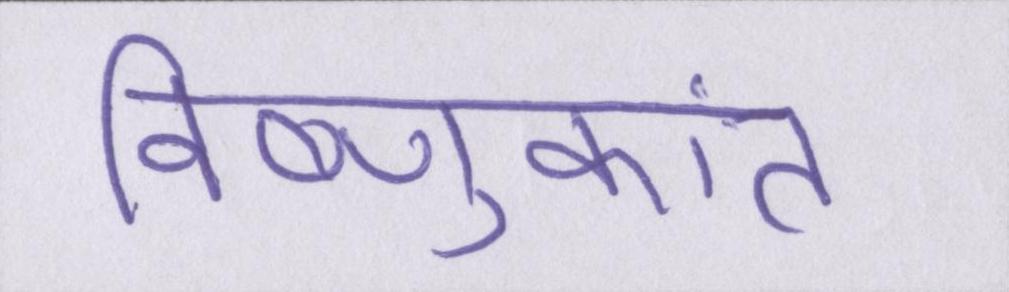 विष्णुकांत